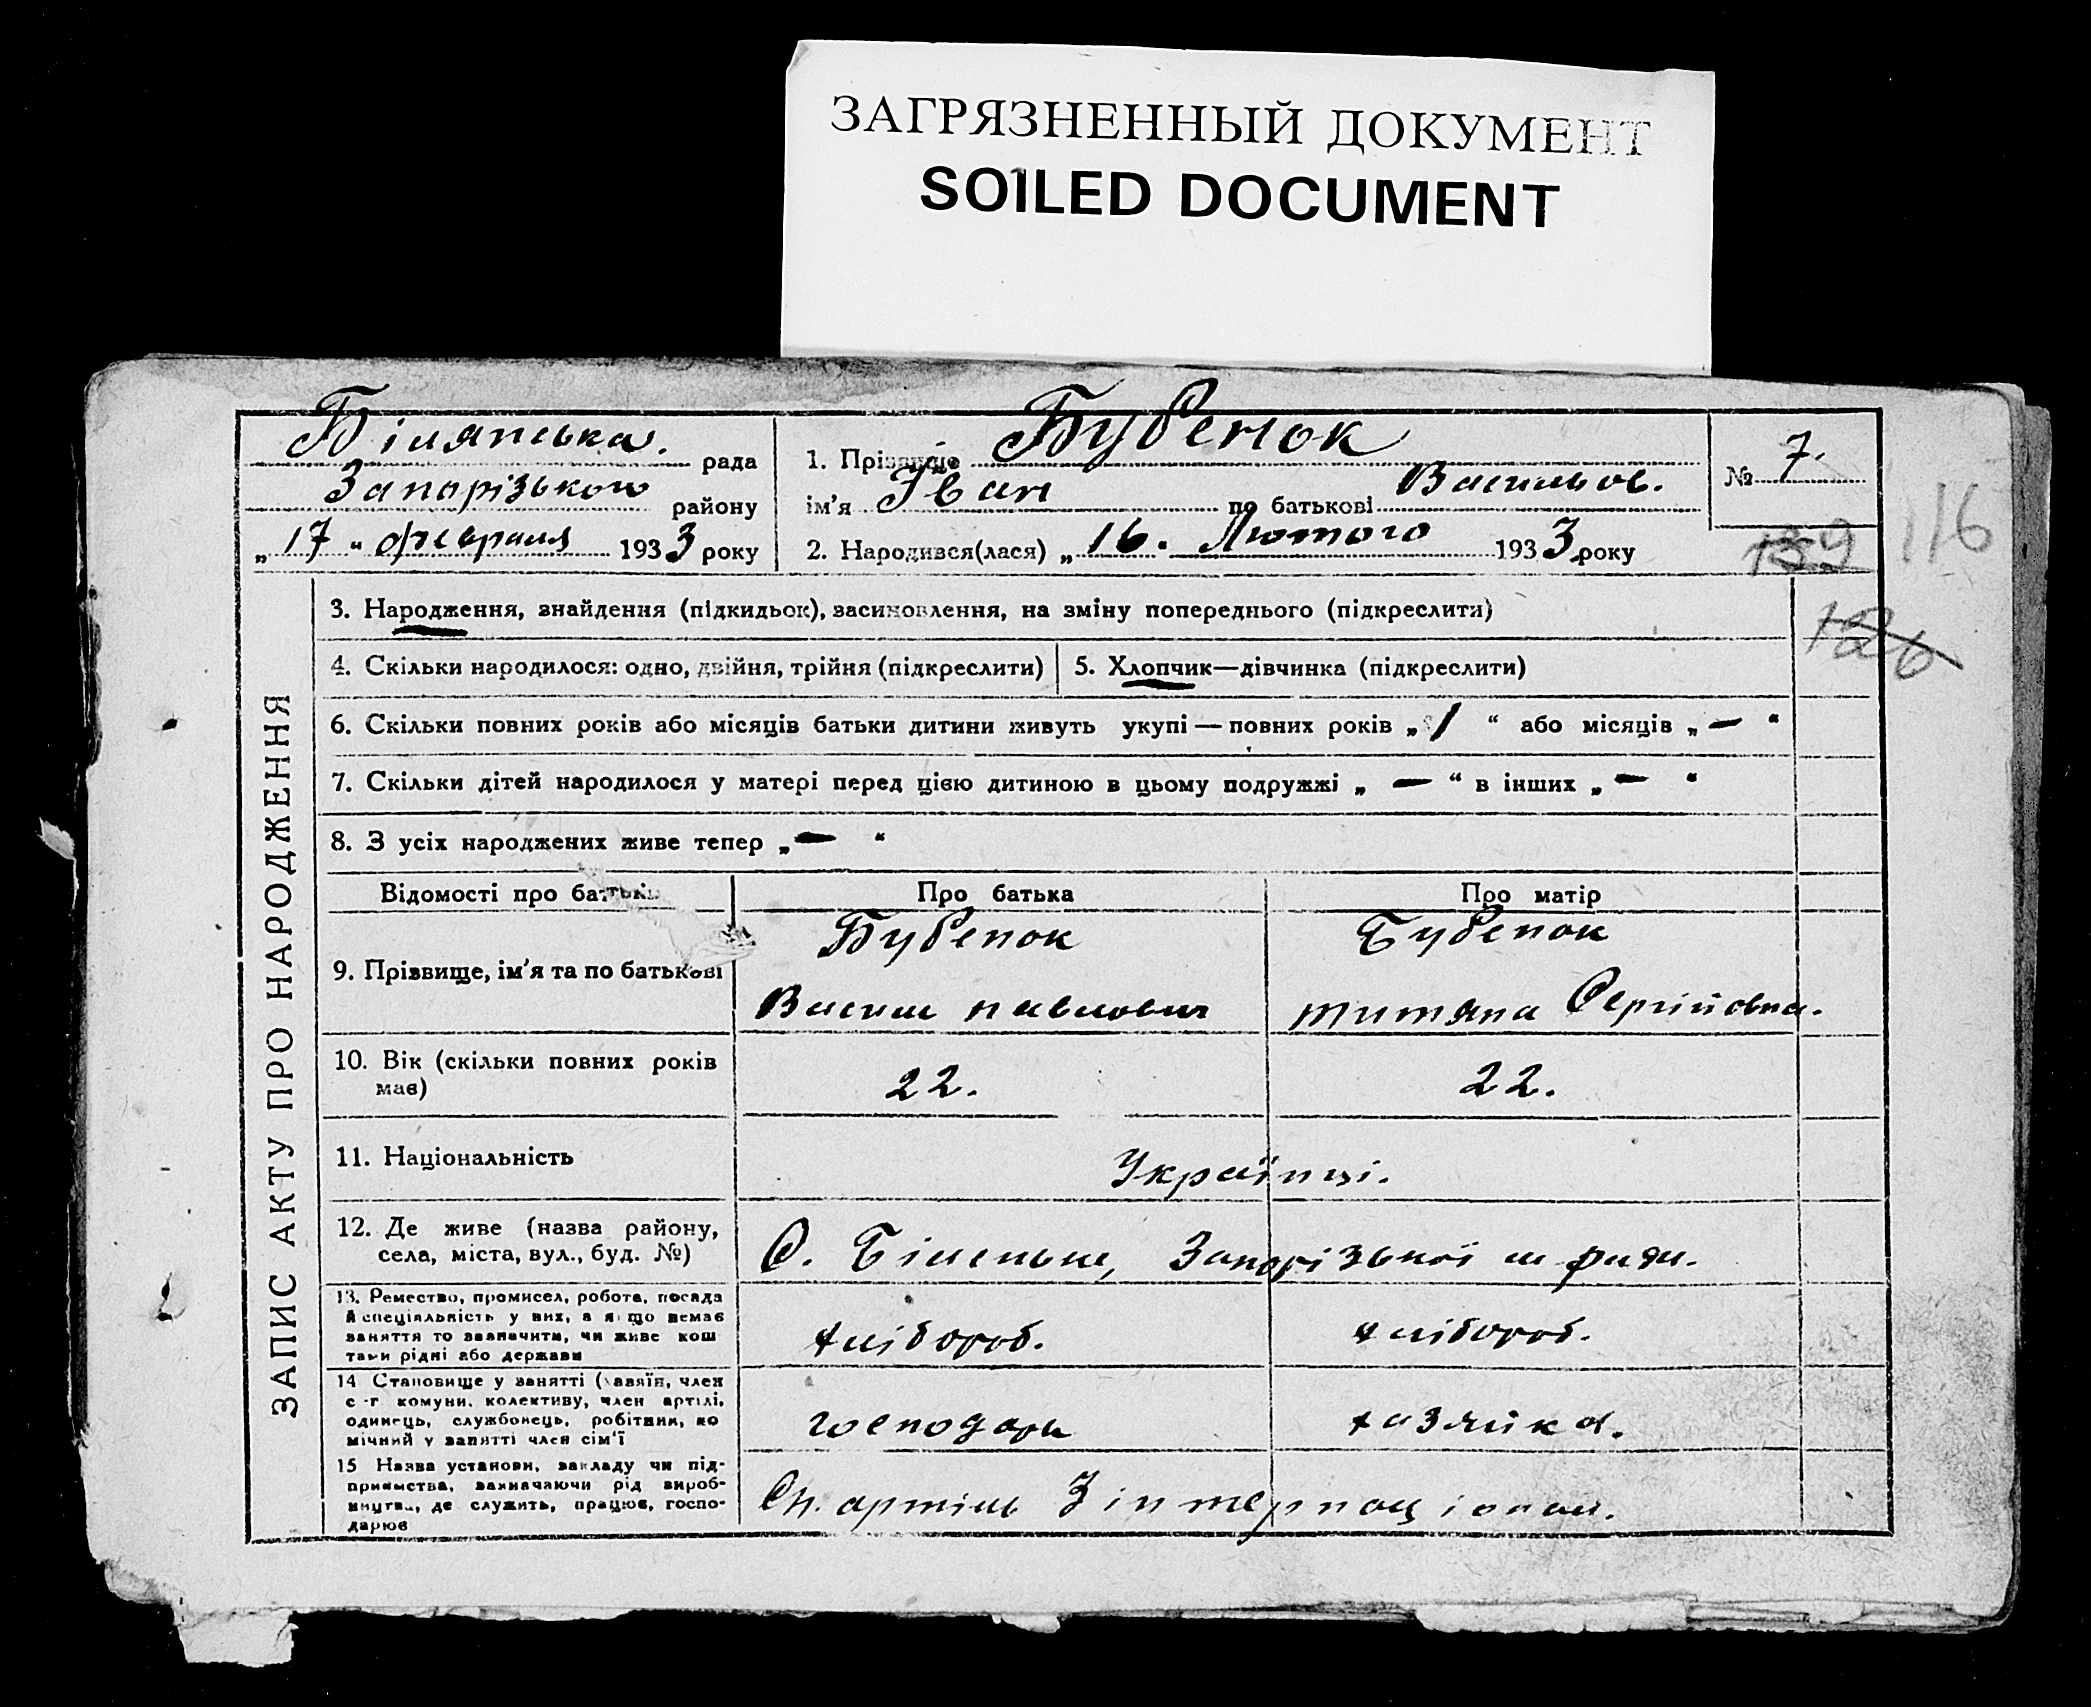 ЗАГРЯЗНЕННЫЙ ДОКУМЕНТ
SOILED DOCUMENT
Білянська. рада
Запорізького району
„ 17 " февраля 1933 року
1. Прізвище Бубенок
ім'я Іван по батькові Васильов.
2. Народився(лася) „ 16. Лютого 1933 року
№ 7.
139 116
126
ЗАПИС АКТУ ПРО НАРОДЖЕННЯ
3. Народження, знайдення (підкидьок), засиновлення, на зміну попереднього (підкреслити)
4. Скільки народилося: одно, двійня, трійня (підкреслити) 5. Хлопчик—дівчинка (підкреслити)
6. Скільки повних років або місяців батьки дитини живуть укупі — повних років „ 1 “ або місяців „ — “
7. Скільки дітей народилося у матері перед цією дитиною в цьому подружжі „ — “ в інших „ — “
8. З усіх народжених живе тепер „ — “
Відомості про батьків Про батька Про матір
Бубенок Бубенок
9. Прізвище, ім'я та по батькові
Васил павлович титяна Сергійовна.
10. Вік (скільки повних років
має) 22. 22.
11. Національність Українці.
12. Де живе (назва району,
села, міста, вул., буд. №) С. Біленьке, Запорізької м ради.
13. Ремество, промисел, робота, посада
й спеціяльність у них, а якщо немає
заняття то зазначити, чи живе кош
тами рідні або держави
хлібороб. хлібороб.
14 Становище у занятті (хазяїн, член
с-г комуни, колективу, член артілі,
одинець, службовець, робітник, по
мічний у занятті член сім'ї
господарь хазяйка.
15 Назва установи, закладу чи під-
приємства, зазначаючи рід вироб-
ництва, де служить, працює, госпо-
дарює
Сп. артіль 3 інтернаціонал.